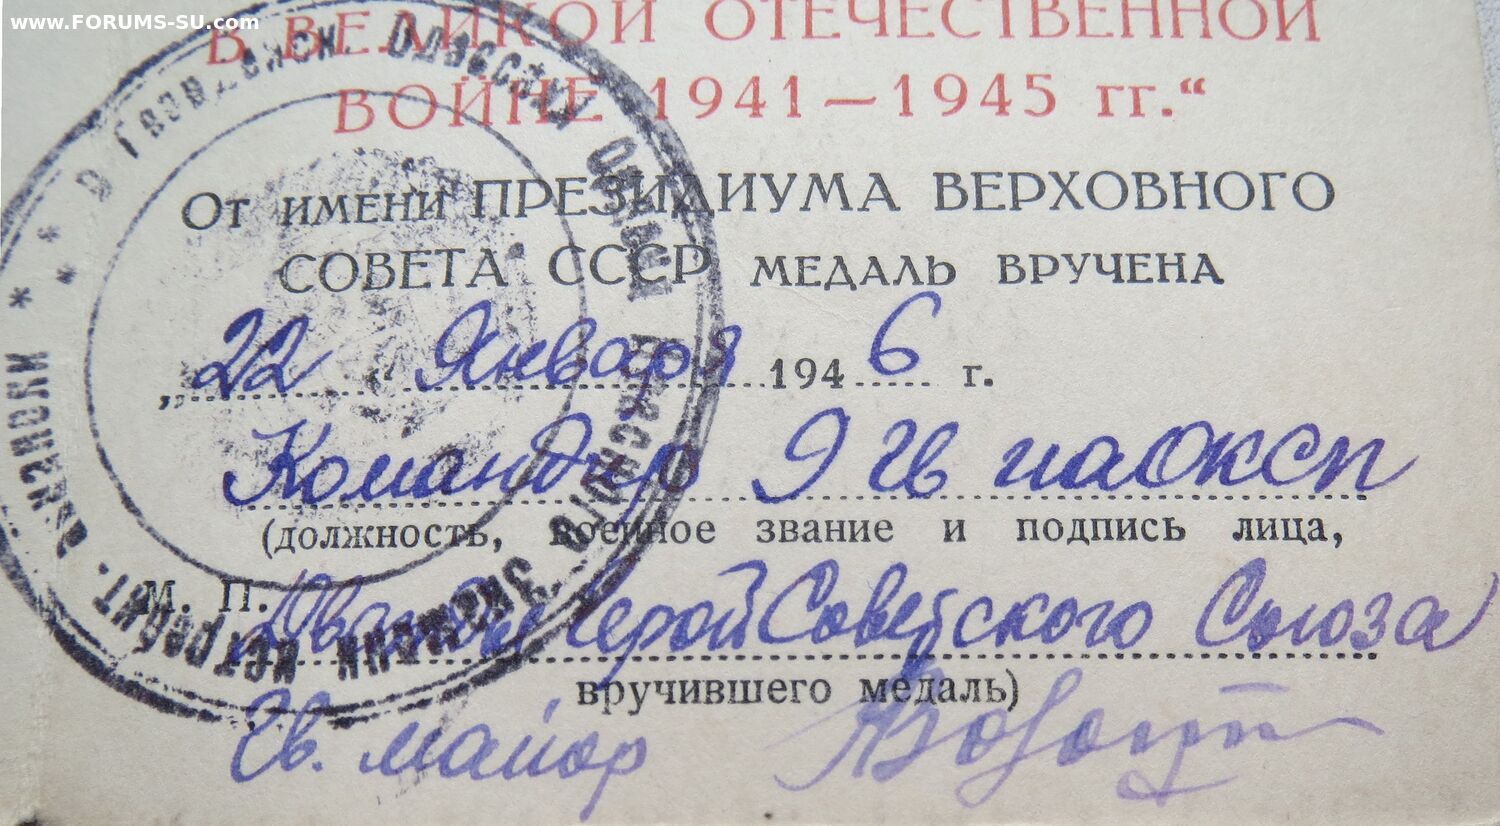 www.FORUMS-SU.com
В ВЕЛИКОЙ ОТЕЧЕСТВЕННОЙ
ВОЙНЕ 1941—1945 гг.“
От имени ПРЕЗИДИУМА ВЕРХОВНОГО
СОВЕТА СССР МЕДАЛЬ ВРУЧЕНА
„22“ Января 1946 г.
Командир 9 гв иаОксп
(должность, военное звание и подпись лица,
М. П. Дважды Герой Советского Союза
вручившего медаль)
Гв. майор
9 Гвардейск. Одесский
истребит.